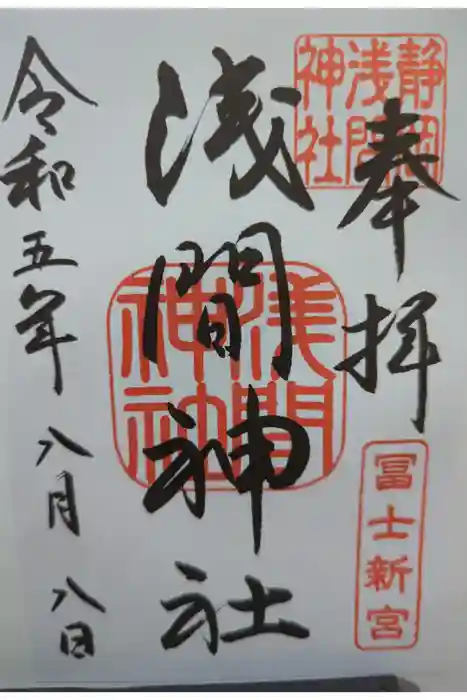 奉拝
静岡
浅間
神社
冨士新宮
浅間神社
浅間
神社
令和五年 八月 八日